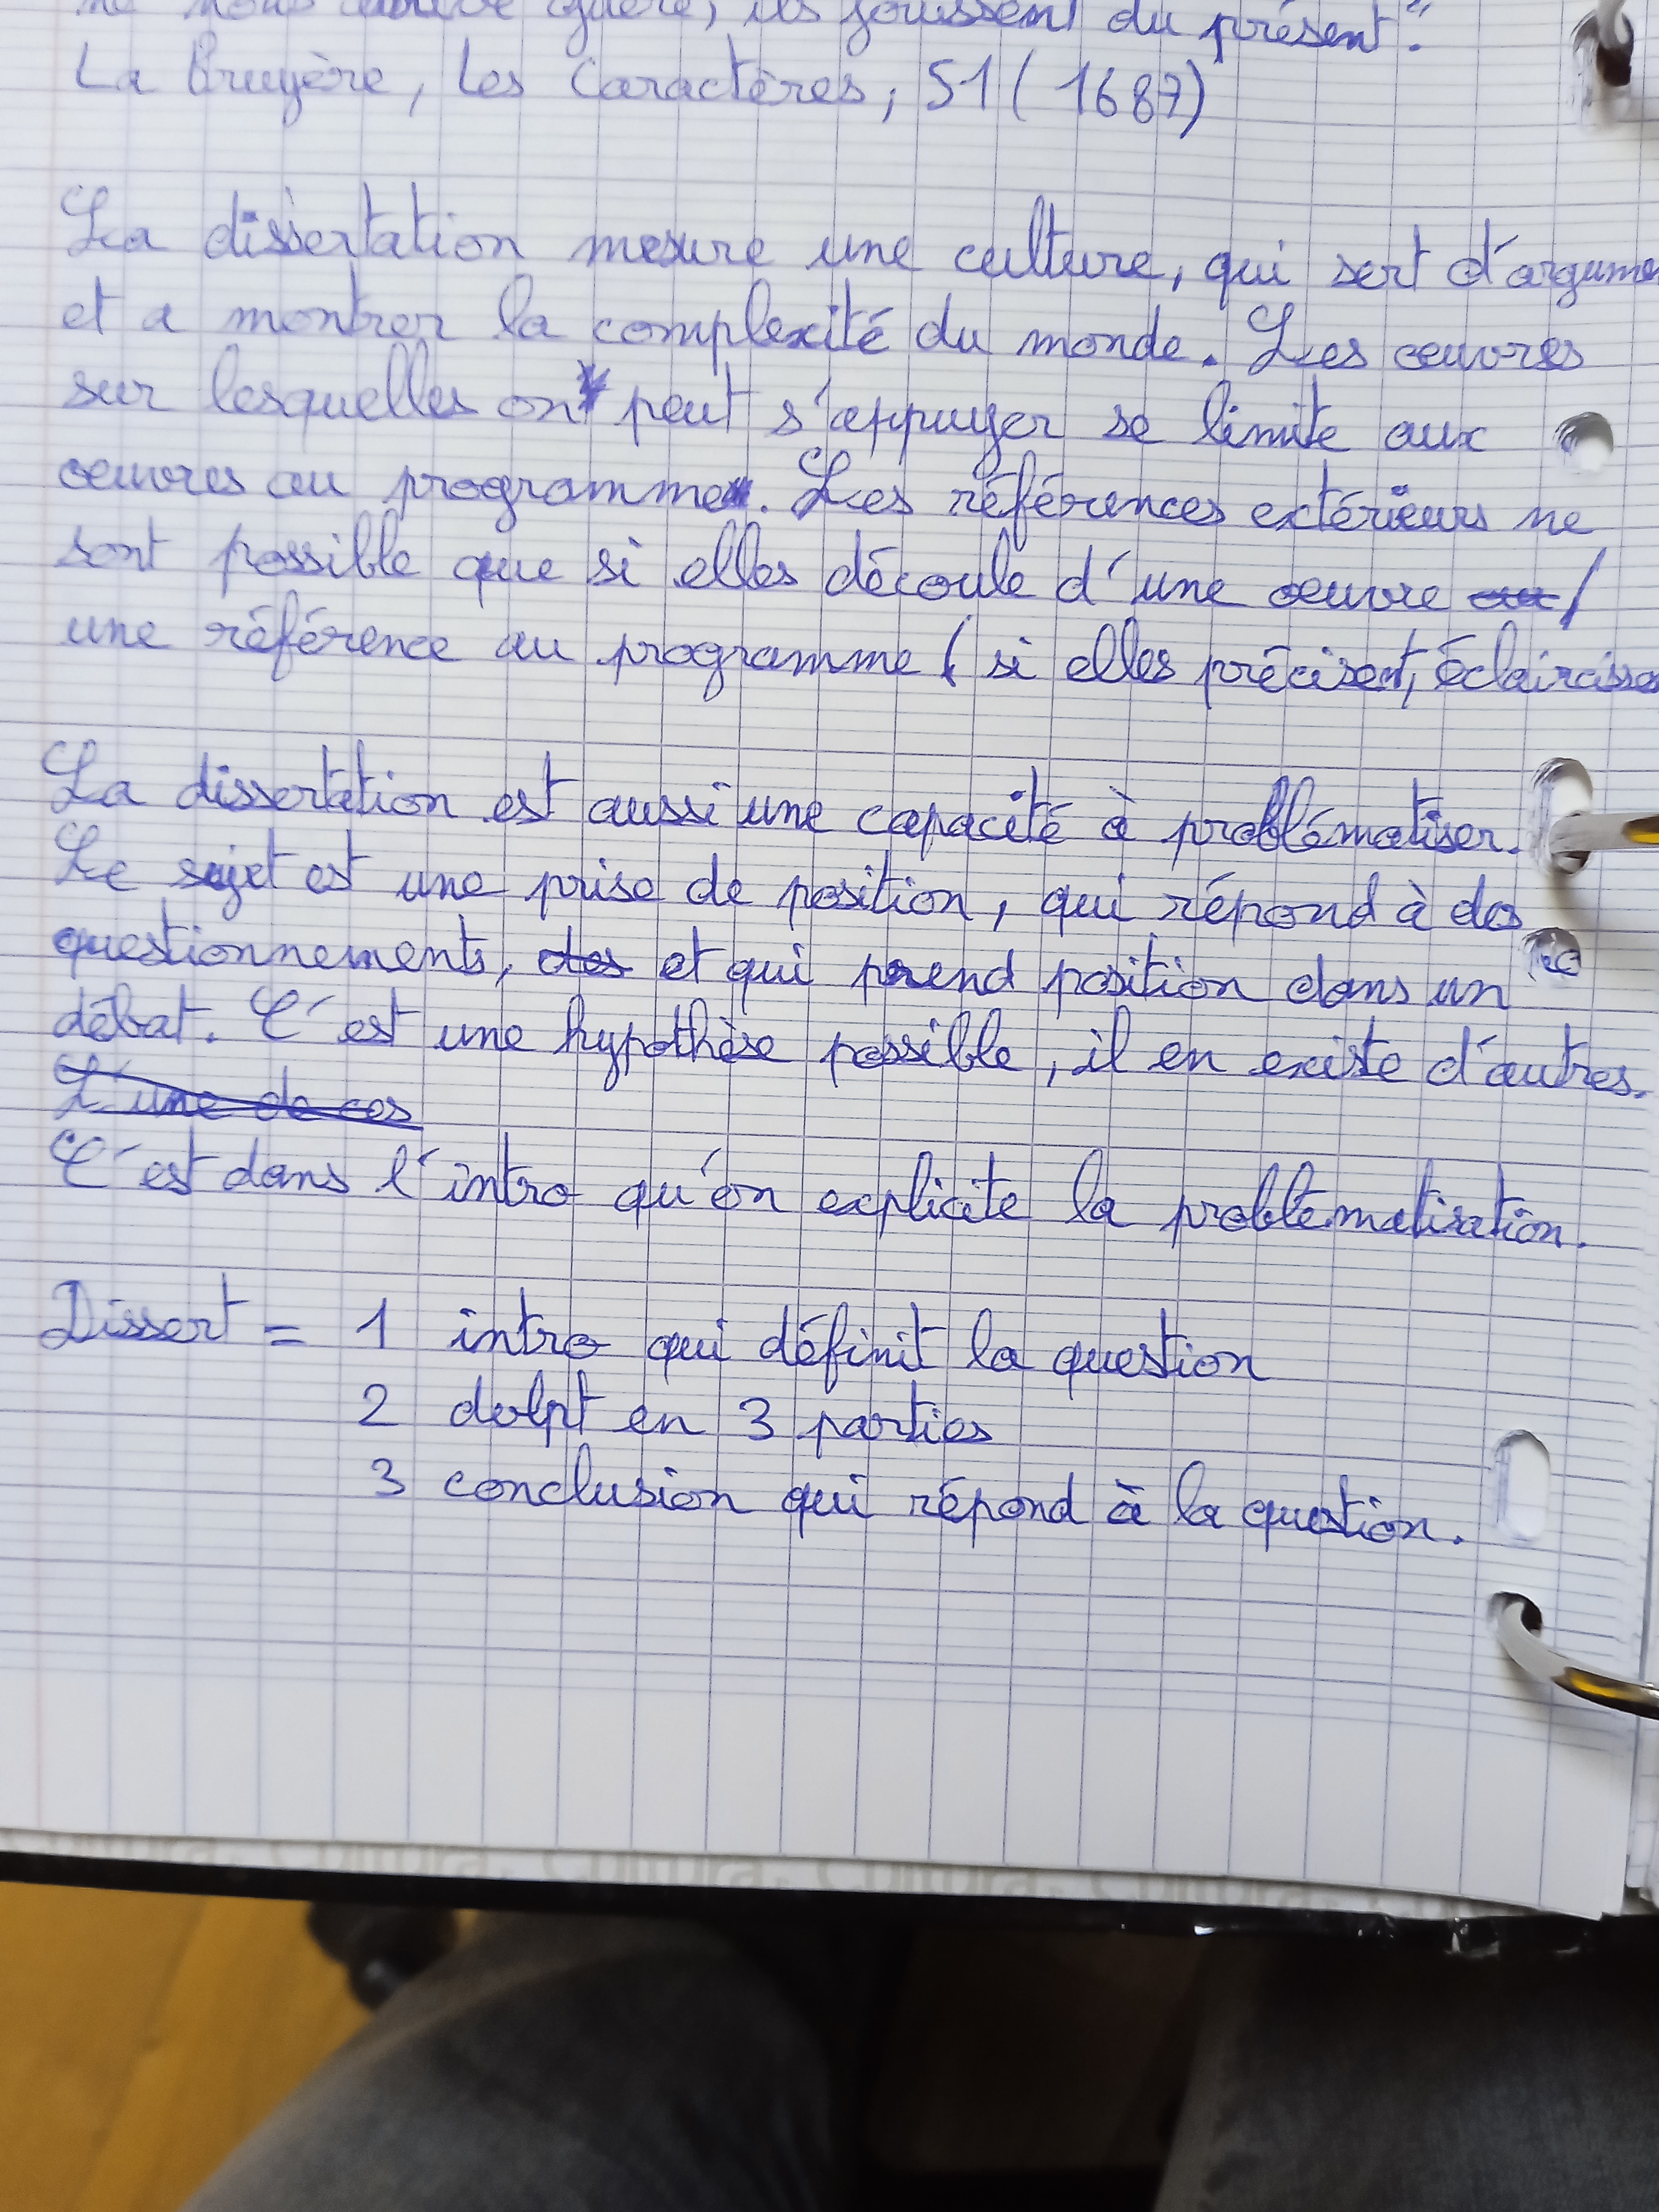 ne nous arrive guère, ils jouissent du présent".
La Bruyère, Les Caractères, 51 (1687)
La dissertation mesure une culture, qui sert d'argume
et a montrer la complexité du monde. Les oeuvres
sur lesquelles on peut s'appuyer se limite aux
oeuvres au programme. Les références extérieurs ne
sont possible que si elles découle d'une oeuvre /
une référence au programme ( si elles précisent, éclaircisse
La dissertation est aussi une capacité à problématiser.
Le sujet est une prise de position, qui répond à des
questionnements, des et qui prend position dans un
débat. C'est une hypothèse possible, il en existe d'autres.
L'une de ces
C'est dans l'intro qu'on explicite la problématisation.
Dissert = 1 intro qui définit la question
2 dvlpt en 3 parties
3 conclusion qui répond à la question.
Cultura. Cultura. Cultura. Cultura.